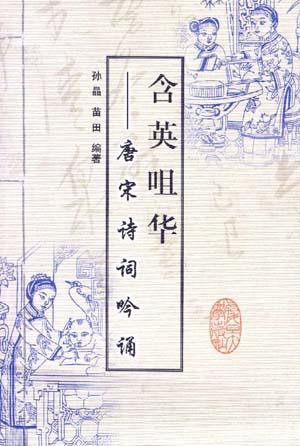 含英咀华
——唐宋诗词吟诵
孙晶 苗田 编著